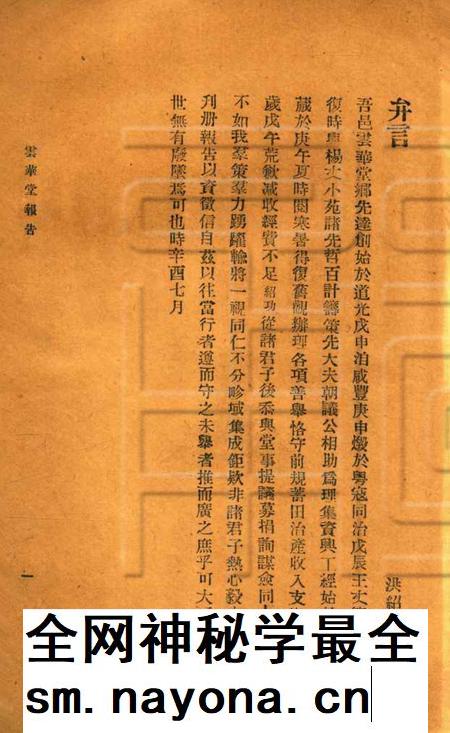 弁言
洪紹
吾邑雲華堂鄉先達創始於道光戊申洎咸豐庚申燬於粵寇同治戊辰王丈
復時與楊丈小苑諸先哲百計籌策先大夫朝議公相助爲理集資興工經始
蕆於庚午夏時閱寒暑得復舊觀辦理各項善舉恪守前規蓄田治產收入支
歲戊午荒歉減收經費不足紹功從諸君子後忝與堂事提議募捐詢謀僉同
不如我羣策羣力踴躍輸將一視同仁不分畛域集成鉅欵非諸君子熱心毅
刋册報告以資徵信自茲以往當行者遵而守之未舉者推而廣之庶乎可大
世無有廢墜爲可也時辛酉七月
雲華堂報告
一
全网神秘学最全
sm.nayona.cn